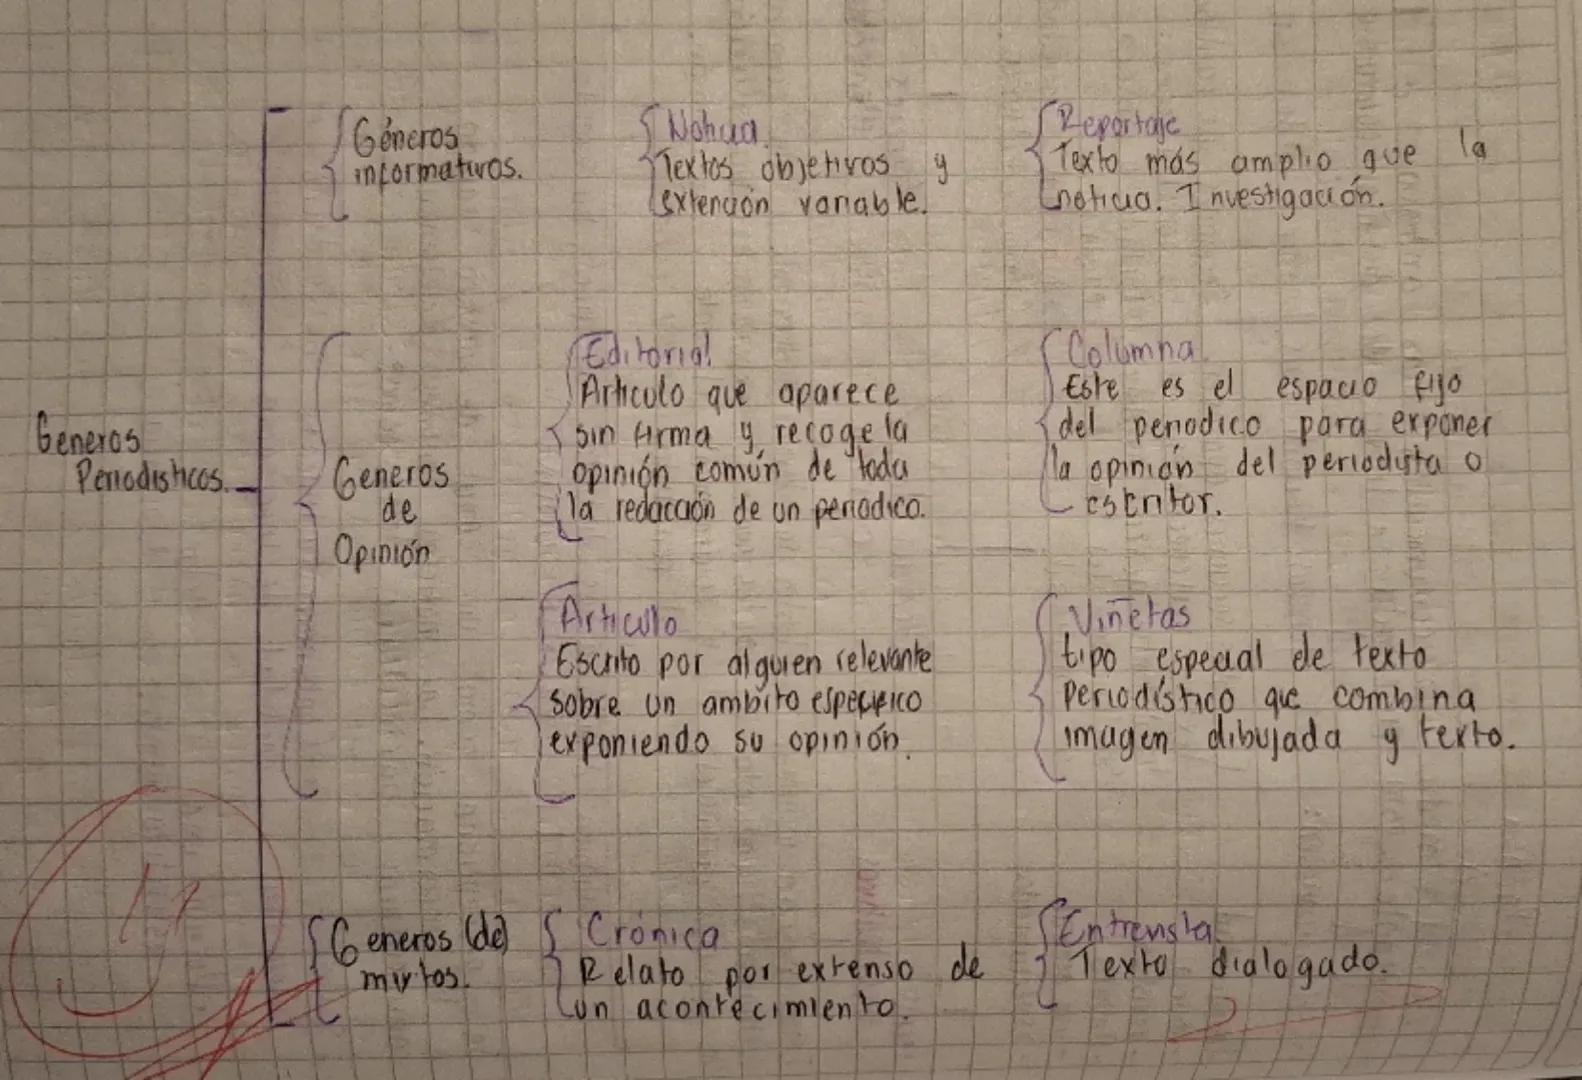 Géneros
informativos.
Noticia.
Textos objetivos y
extención variable.
Reportaje
Texto más amplio que la
noticia. Investigación.
Generos
Periodisticos.
Generos
de
Opinión
Editorial
Articulo que aparece
sin firma y recoge la
opinión común de toda
la redacción de un periodico.
Columna
Este es el espacio fijo
del periodico para exponer
la opinión del periodista o
escritor.
Articulo
Escrito por alguien relevante
sobre un ambito especifico
exponiendo su opinión.
Viñetas
tipo especial de texto
Periodístico que combina
imagen dibujada y texto.
Generos (de)
mixtos.
Crónica
Relato por extenso de
un acontecimiento.
Entrevista
Texto dialogado.